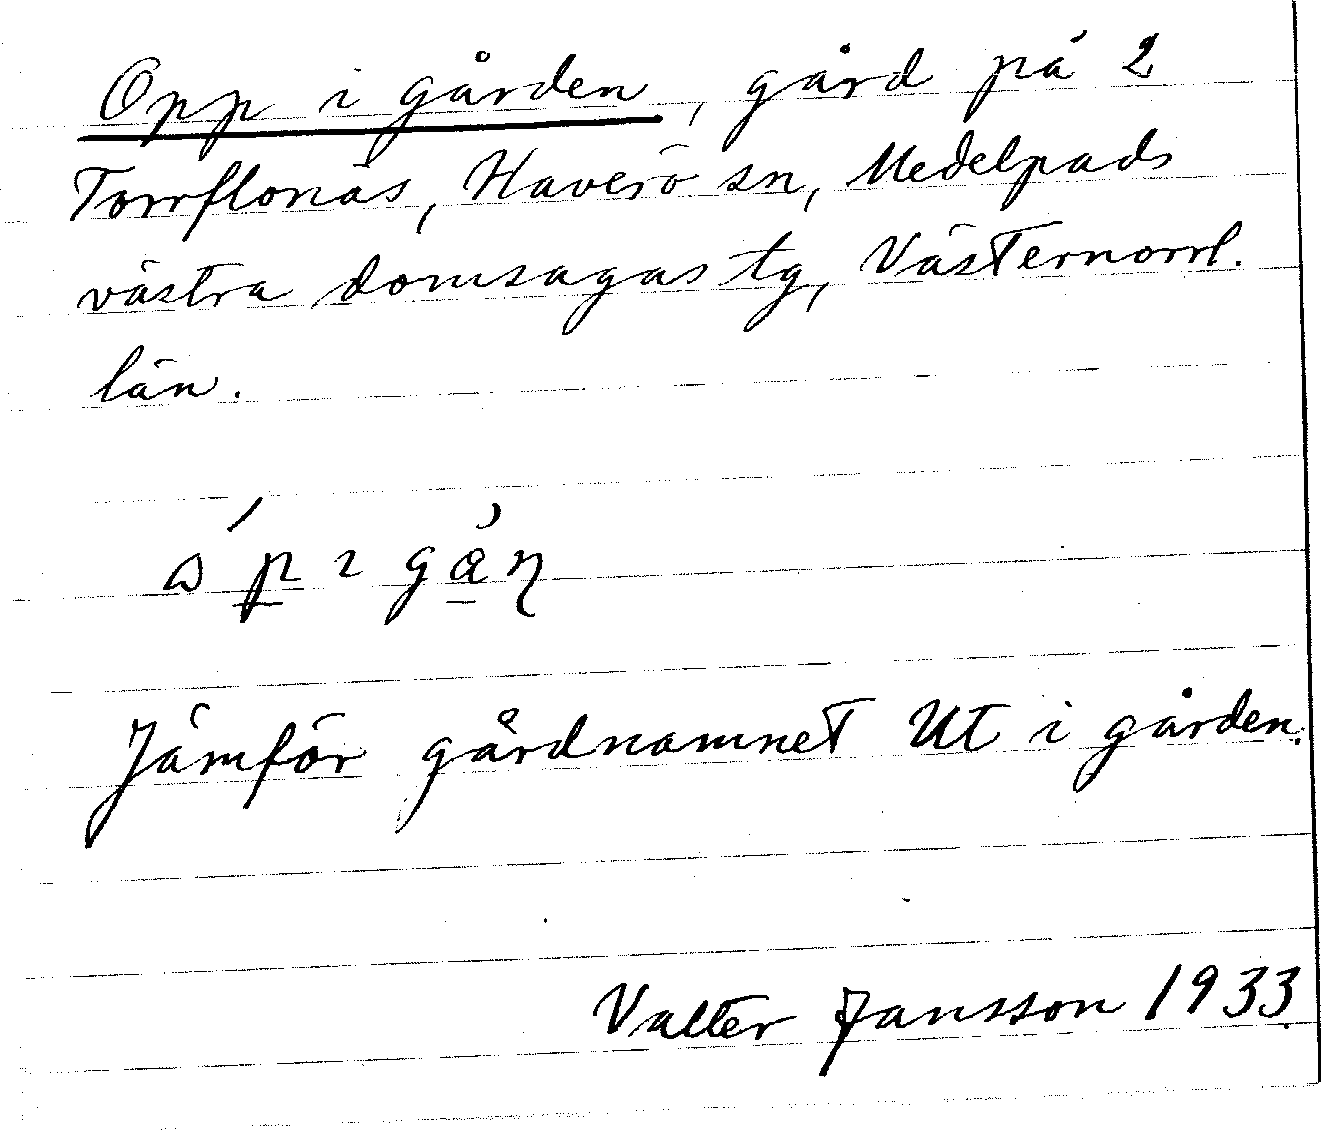 Opp i gården, gård på 2
Torrflonäs, Haverö sn, Medelpads
västra domsagas tg, Västernorrl.
län.
Jämför gårdnamnet Ut i gården.
Valter Jansson 1933